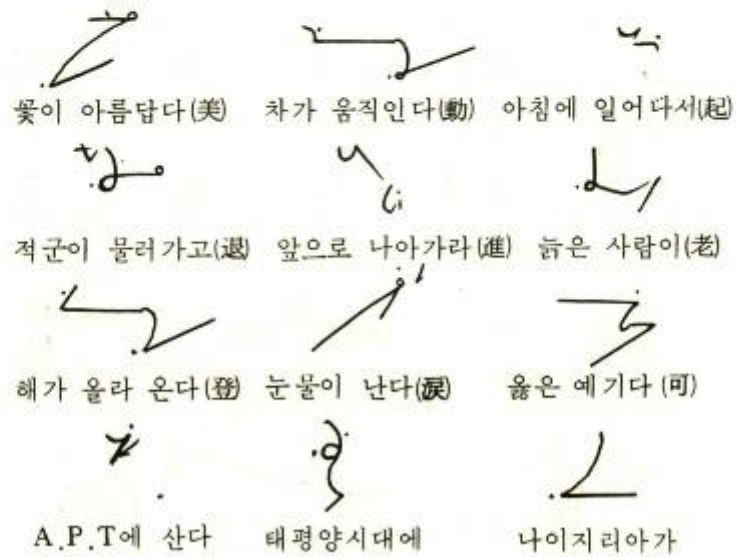 꽃이 아름답다(美) 차가 움직인다(動) 아침에 일어다서(起)
적군이 물러가고(退) 앞으로 나아가라(進) 늙은 사람이(老)
해가 올라 온다(登) 눈물이 난다(淚) 옳은 예기다 (可)
A.P.T에 산다 태평양시대에 나이지리아가